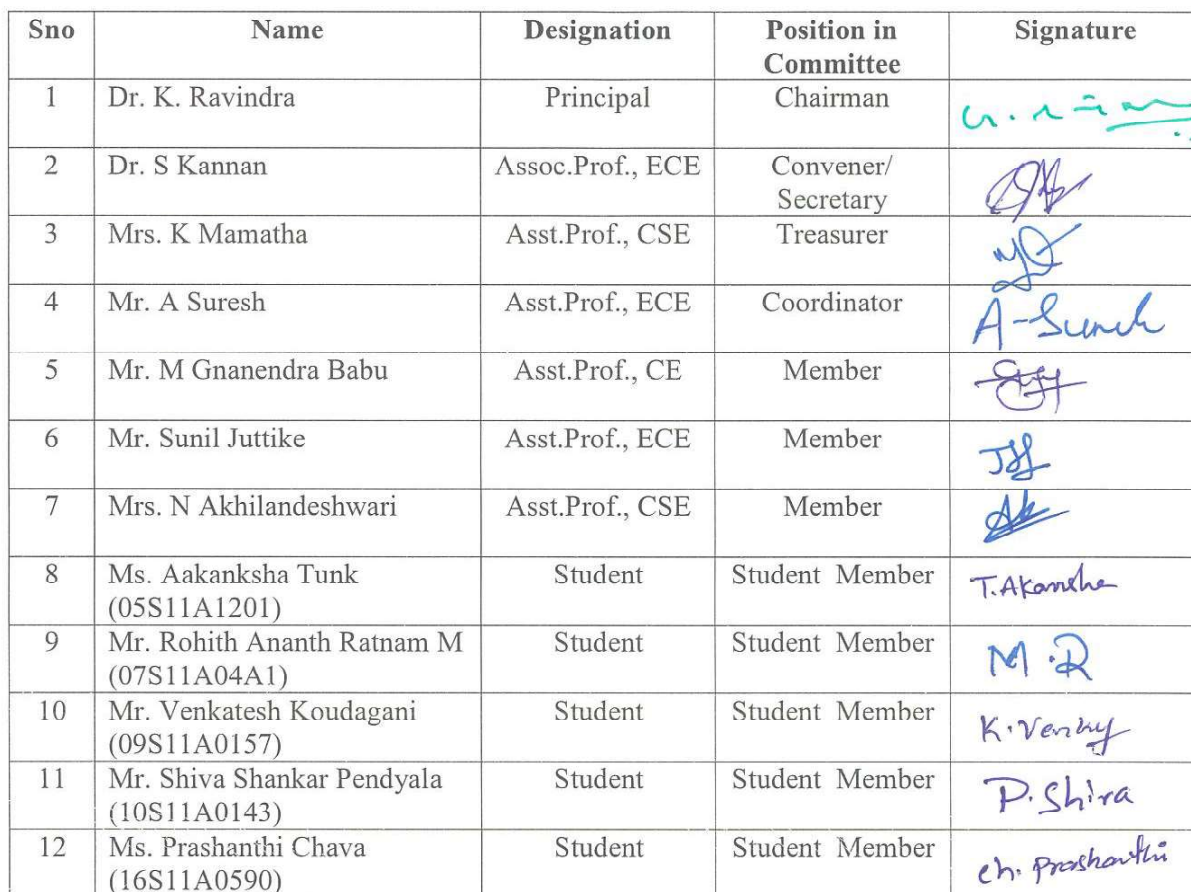 Sno Name Designation Position in
Committee Signature
1 Dr. K. Ravindra Principal Chairman
2 Dr. S Kannan Assoc.Prof., ECE Convener/
Secretary
3 Mrs. K Mamatha Asst.Prof., CSE Treasurer
4 Mr. A Suresh Asst.Prof., ECE Coordinator A-Suresh
5 Mr. M Gnanendra Babu Asst.Prof., CE Member
6 Mr. Sunil Juttike Asst.Prof., ECE Member
7 Mrs. N Akhilandeshwari Asst.Prof., CSE Member
8 Ms. Aakanksha Tunk Student Student Member T.Akansha
(05S11A1201)
9 Mr. Rohith Ananth Ratnam M Student Student Member M.R
(07S11A04A1)
10 Mr. Venkatesh Koudagani Student Student Member K.Venky
(09S11A0157)
11 Mr. Shiva Shankar Pendyala Student Student Member P.Shiva
(10S11A0143)
12 Ms. Prashanthi Chava Student Student Member ch. Prashanthi
(16S11A0590)